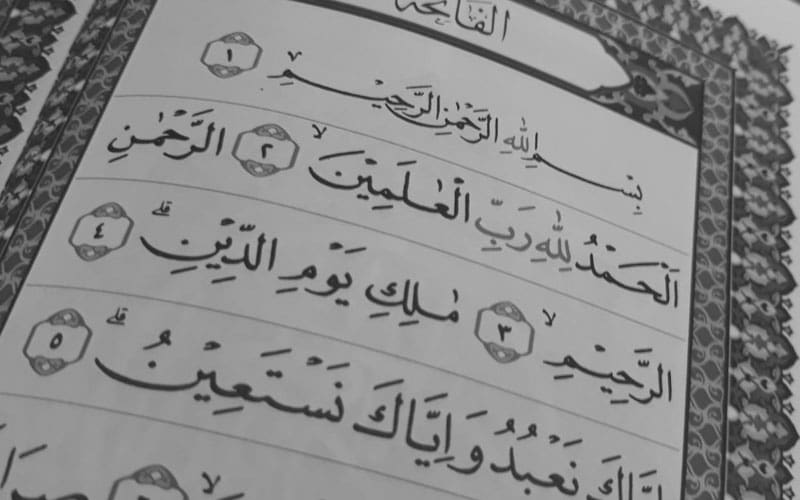 الفاتحة
بِسْمِ اللّٰهِ الرَّحْمٰنِ الرَّحِيْمِ ۙ ١
اَلْحَمْدُ لِلّٰهِ رَبِّ الْعٰلَمِيْنَ ۙ ٢ الرَّحْمٰنِ
الرَّحِيْمِ ۙ ٣ مٰلِكِ يَوْمِ الدِّيْنِۗ ٤
اِيَّاكَ نَعْبُدُ وَاِيَّاكَ نَسْتَعِيْنُۗ ٥